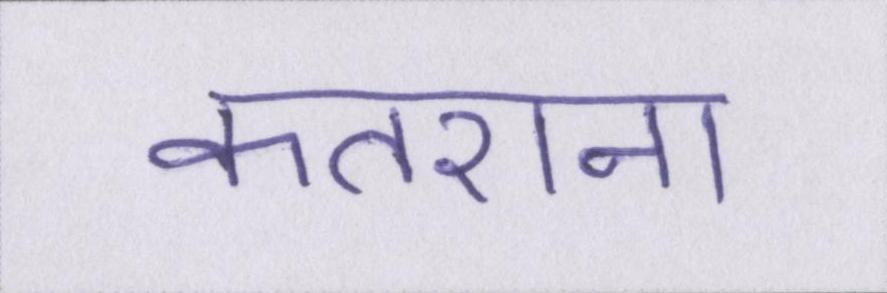 कतराना